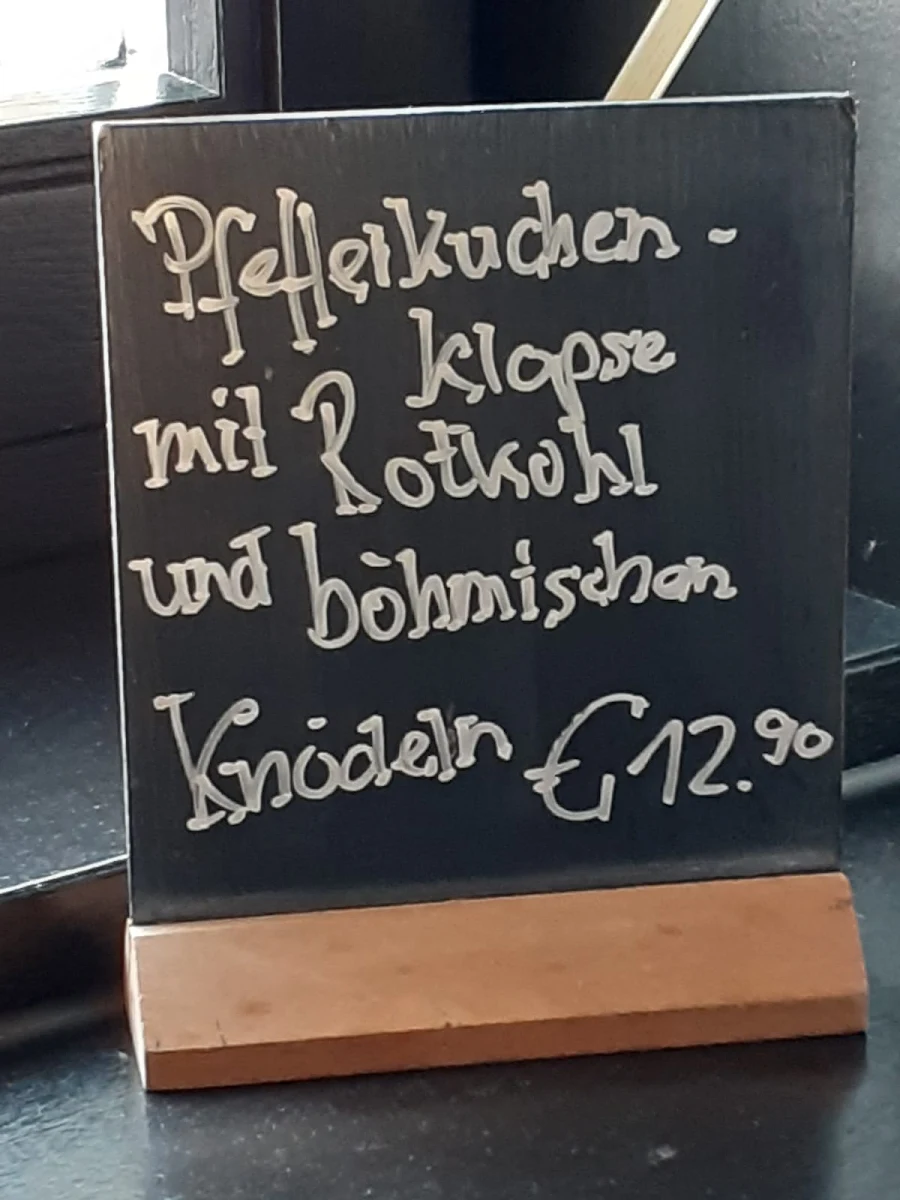 Pfefferkuchen-
klopse
mit Rotkohl
und böhmischen
Knödeln €12.90